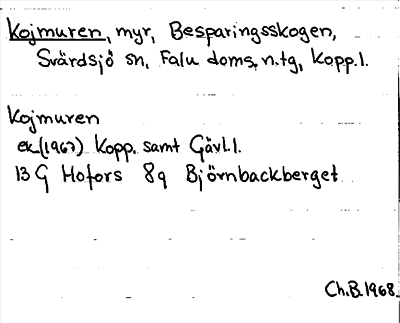 Kojmuren, myr, Besparingsskogen,
Svärdsjö sn, Falu doms. n. tg, Kopp. l.
Kojmuren
ek (1967) Kopp. samt Gävl. l.
13 G Hofors 8q Björnbackberget
Ch.B. 1968.